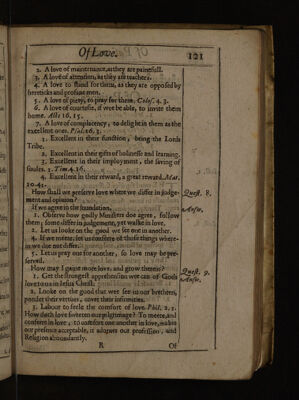 Of Love.
121
2. A love of maintenance, as they are painefull.
3. A love of attention, as they are teachers.
4. A love to stand for them, as they are opposed by
hereticks and profane men.
5. A love of piety, to pray for them. Colos. 4. 3.
6. A love of courtesie, if wee be able, to invite them
home. Acts 16. 15.
7. A love of complacency, to delight in them as the
excellent ones. Psal. 16. 3.
1. Excellent in their function, being the Lords
Tribe.
2. Excellent in their gifts of holinesse and learning.
3. Excellent in their imployment, the saving of
soules. 1. Tim. 4. 16.
4. Excellent in their reward, a great reward. Mat.
10. 41.
How shall we preserve love where we differ in judge-
ment and opinion?
Quest. 8.
If we agree in the foundation.
Answ.
1. Observe how godly Ministers doe agree, follow
them; some differ in judgement, yet walke in love.
2. Let us looke on the good we see one in another.
4. If we meete, let us conferre of those things where-
in we doe not differ.
5. Let us pray one for another, so love may be pre-
served.
How may I gaine more love, and grow therein?
Quest. 9.
1. Get the strongest apprehensions wee can of Gods
Answ.
love to us in Iesus Christ.
2. Looke on the good that wee see in our brethren,
ponder their vertues, cover their infirmities.
3. Labour to feele the comfort of love. Phil. 2. 1.
How doth love sweeten our pilgrimage? To meete, and
conferre in love, to comfort one another in love, makes
our presence acceptable, it adornes our profession, and
Religion abundantly.
R
Of